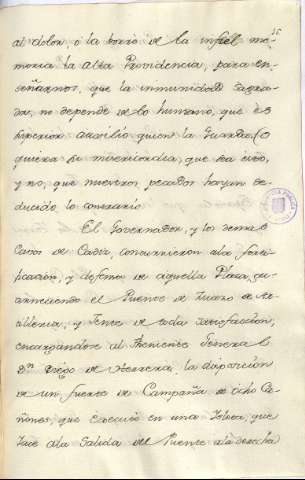 al dolor, ò la borrò de la infiel me=
moria la Alta Providencia, para en=
señarnos, que la inmunidad Sagra=
da, no depende de lo humano, que es
superior auxilio quien la Guarda (ò
quiera su misericordia, que sea esto,
y no, que nuestros pecados hayan de=
ducido lo contrario
El Governador, y los demas
Cavos de Cadiz, concurrieron ala forti=
ficacion, y defensa de aquella Plaza, gu=
arneciendo el Puente de Zuazo de Ar=
tilleria, y Jente de toda satisfaccion,
encargandose al Theniente General
Dn. Diego de Herrera, la disposicion
de un fuerte de Campaña de ocho Ca=
ñones, que executò en una Isleta, que
hace ala Salida del Puente ala derecha